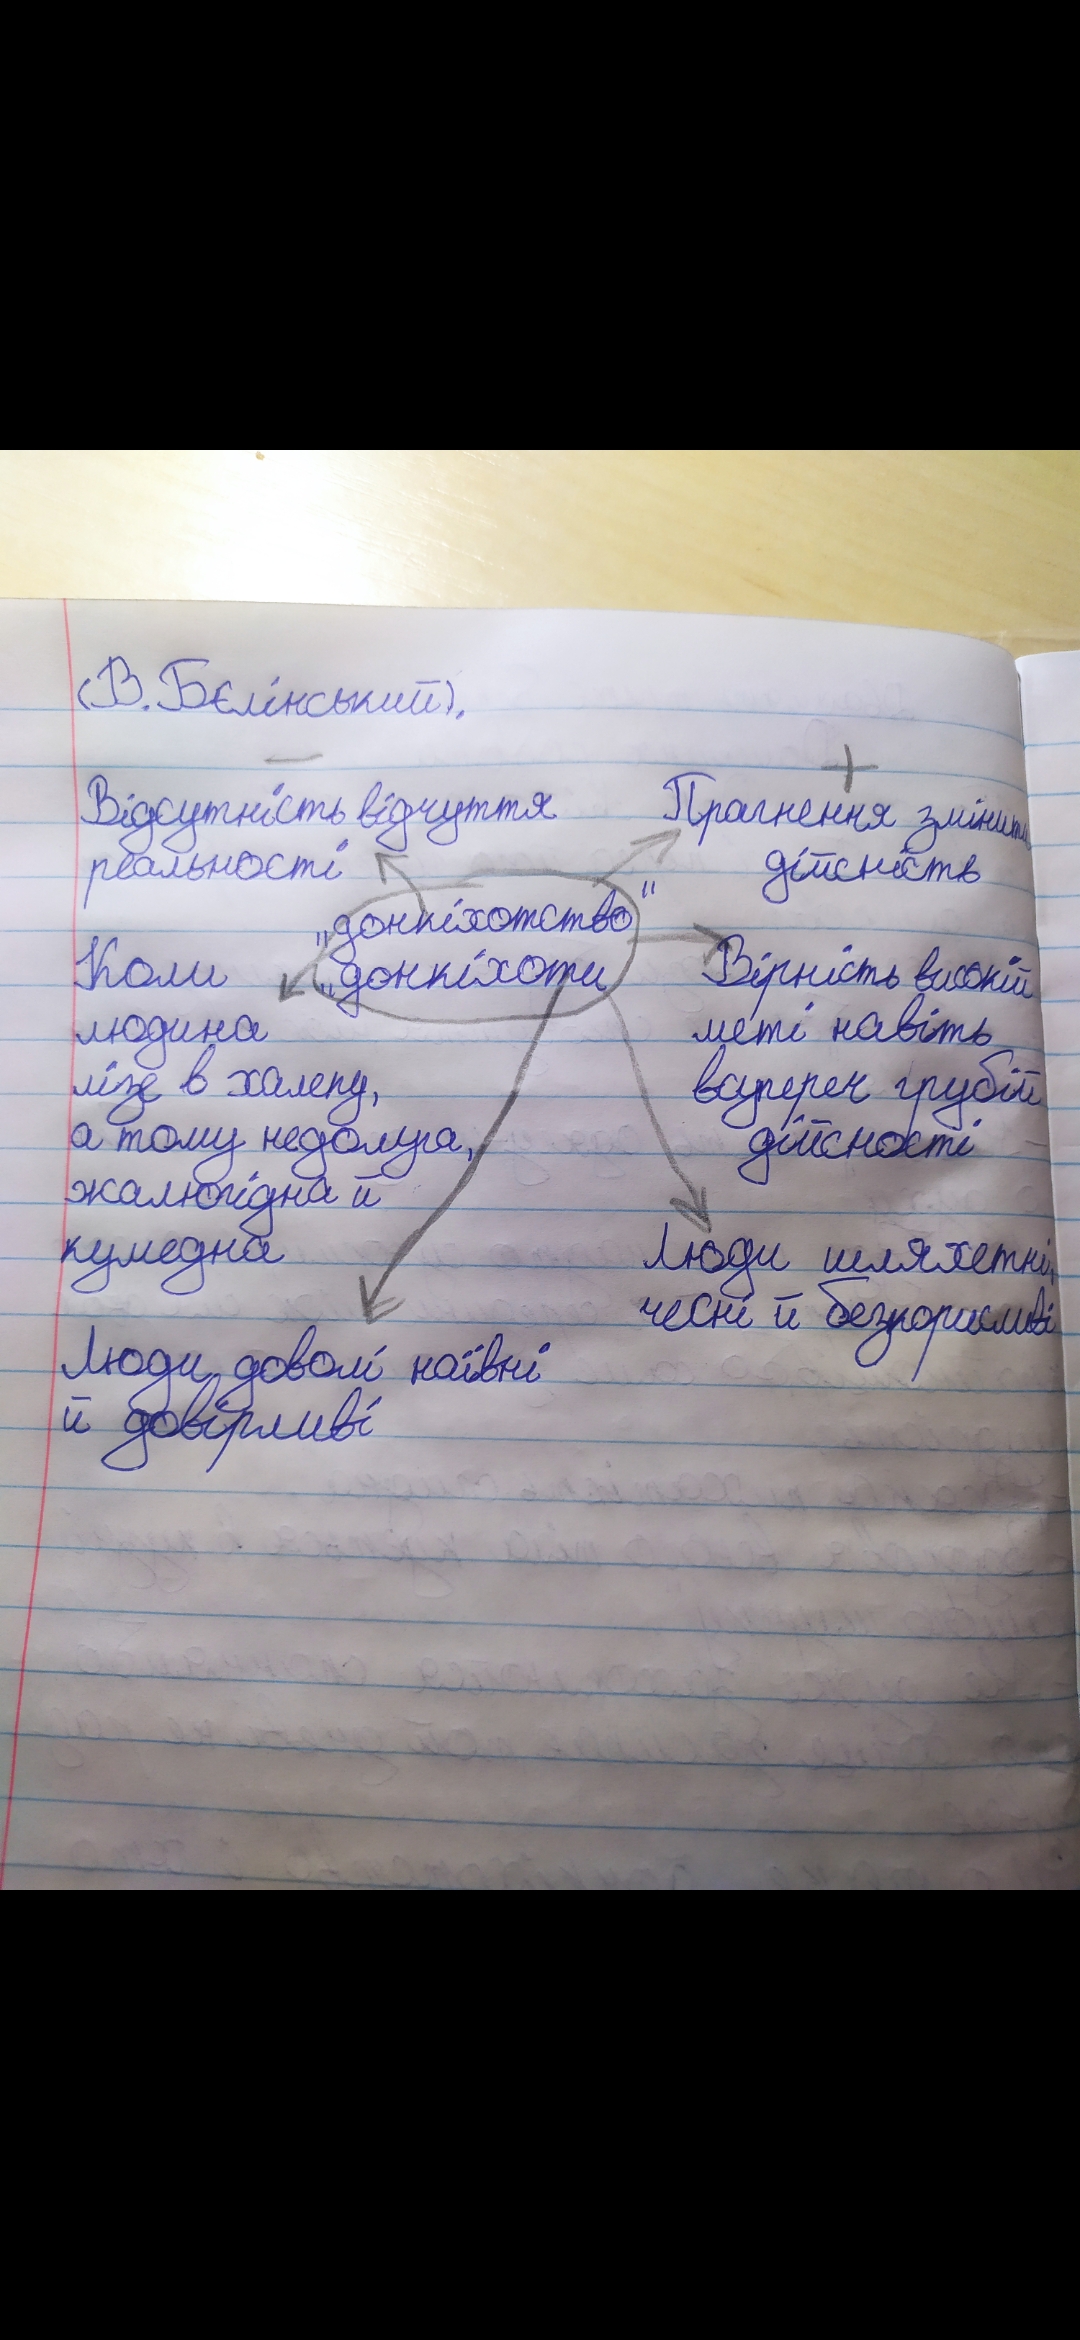 (В. Бєлінський).
–
+
Відсутність відчуття
реальності
Прагнення змінити
дійсність
"донкіхотство"
"донкіхоти
Коли
людина
лізе в халепу,
а тому недолуга,
жалюгідна й
кумедна
Вірність високій
меті навіть
всупереч грубій
дійсності
Люди шляхетні,
чесні й безкорисливі
Люди доволі наївні
й довірливі